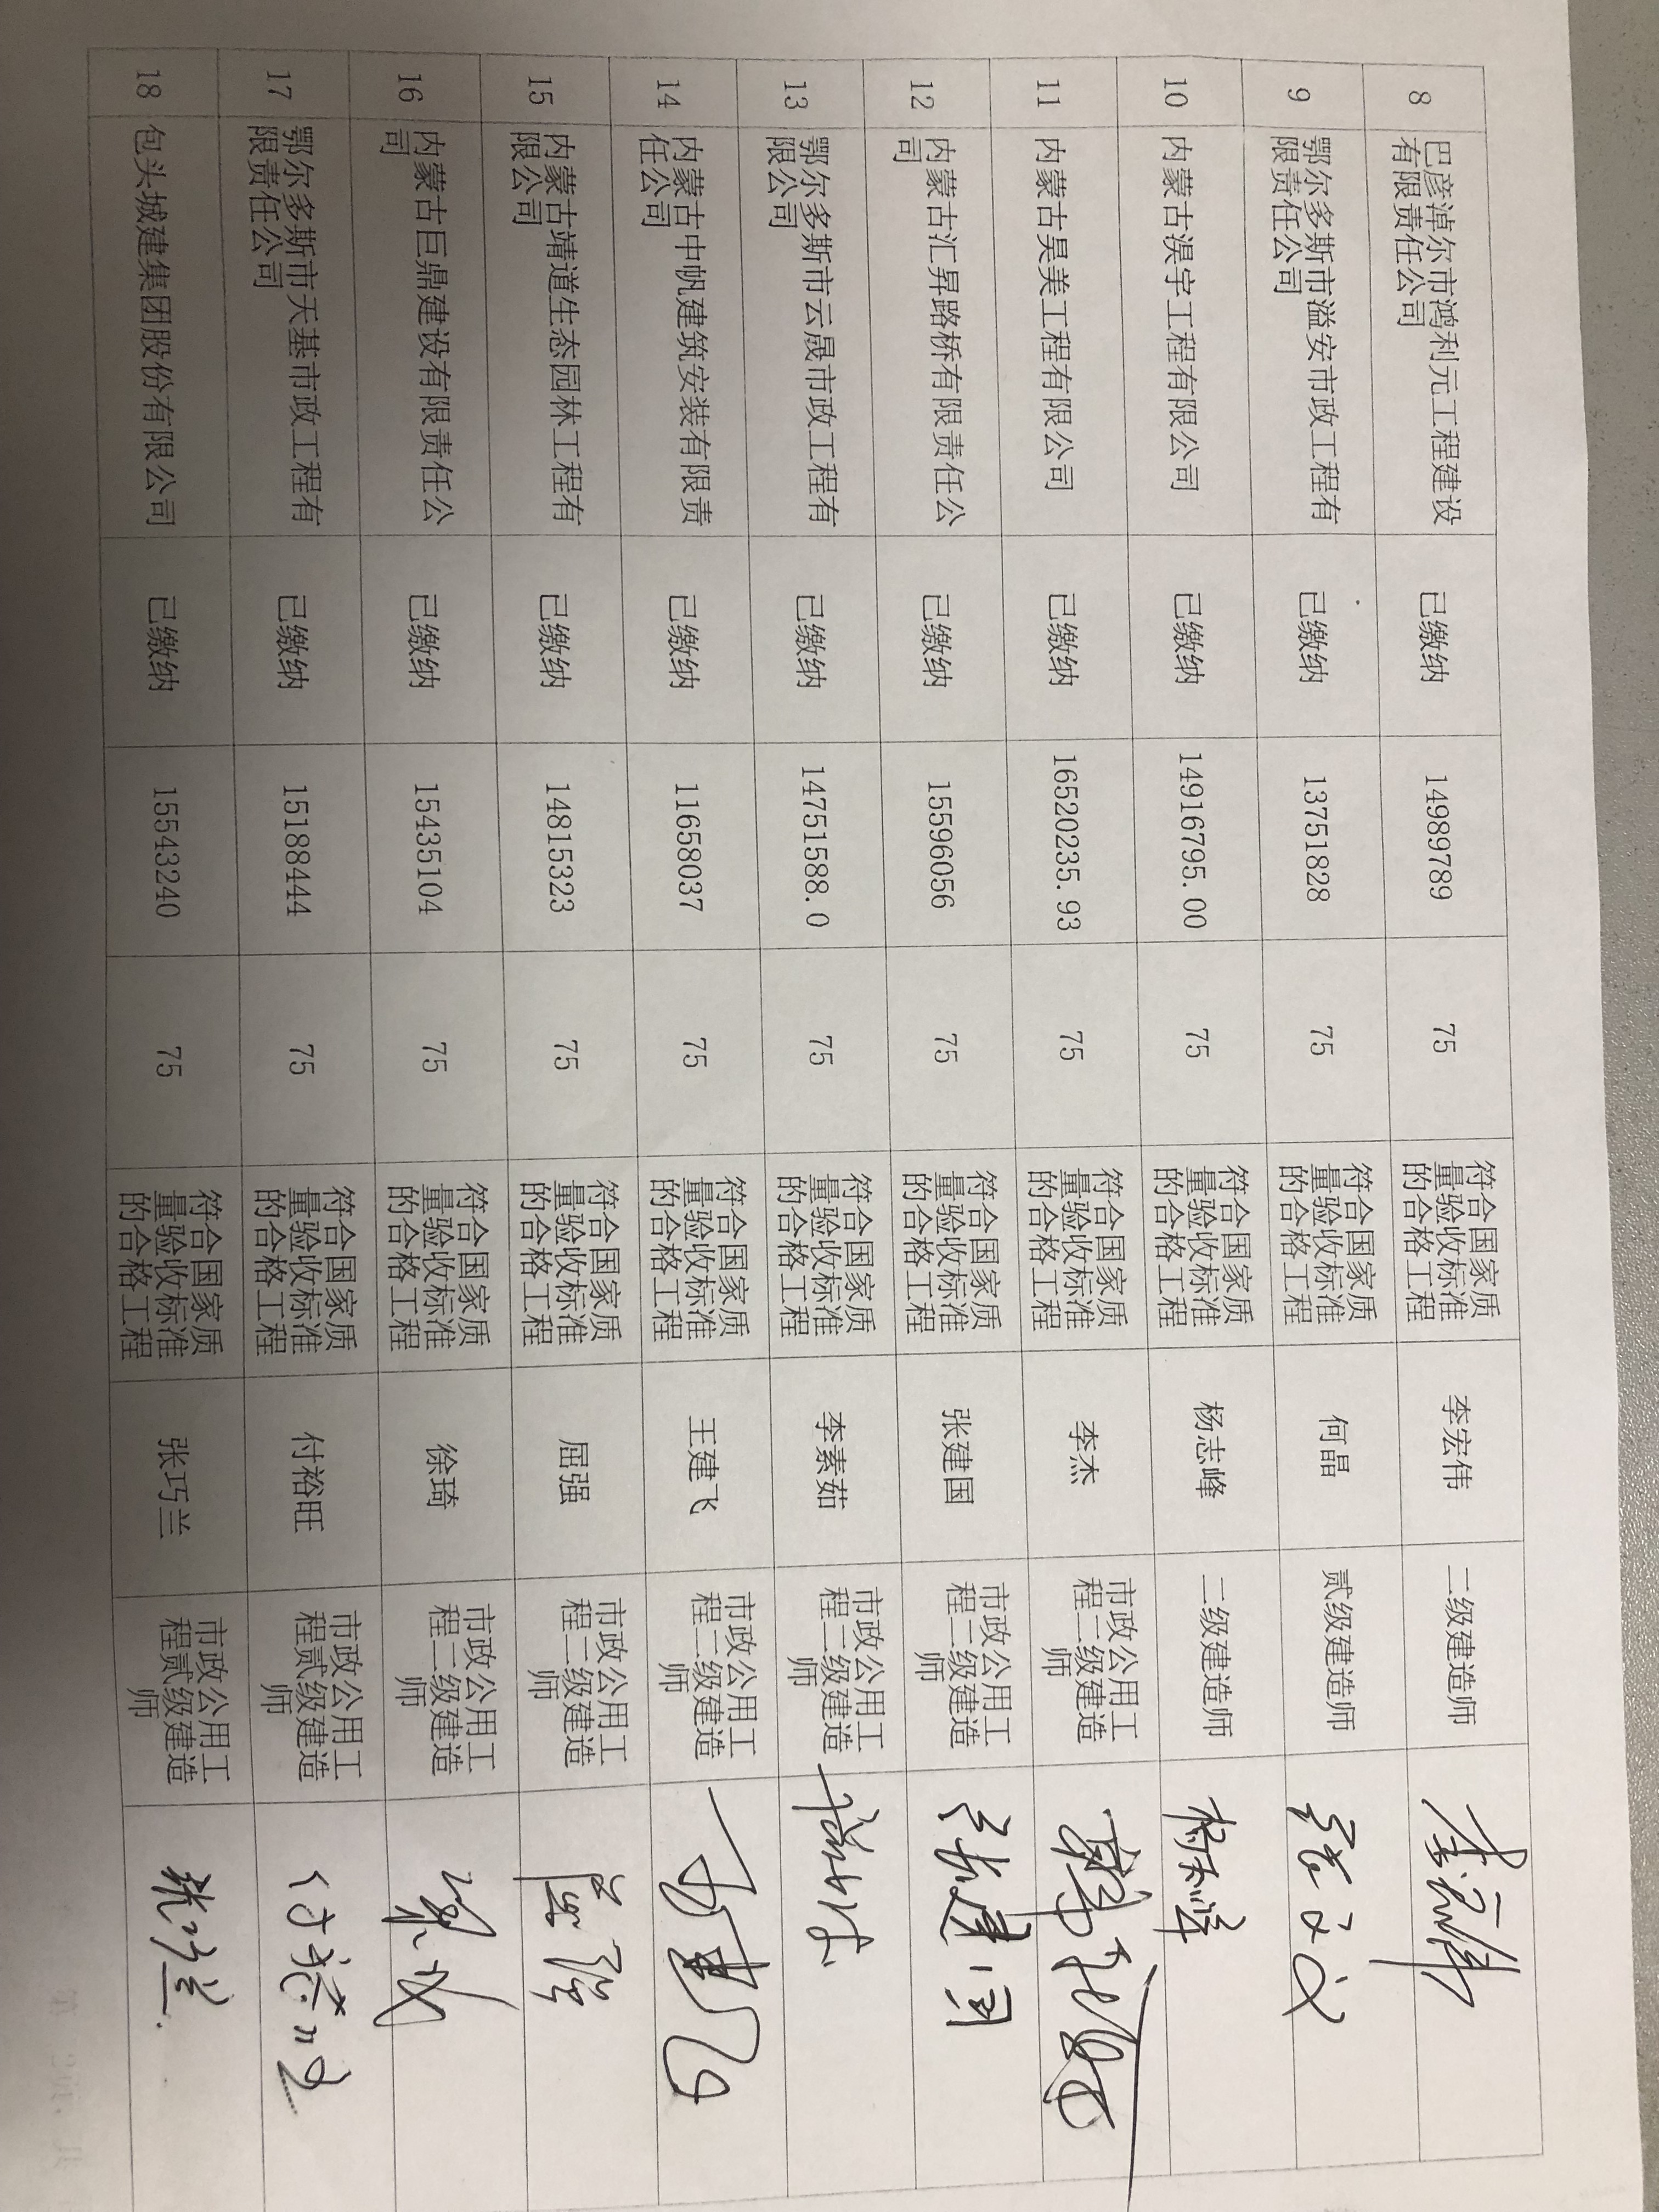 8
巴彦淖尔市鸿利元工程建设
有限责任公司
已缴纳
14989789
75
符合国家质
量验收标准
的合格工程
李宏伟
二级建造师
李宏伟
9
鄂尔多斯市溢安市政工程有
限责任公司
已缴纳
13751828
75
符合国家质
量验收标准
的合格工程
何晶
贰级建造师
10
内蒙古淏宇工程有限公司
已缴纳
14916795.00
75
符合国家质
量验收标准
的合格工程
杨志峰
二级建造师
杨志峰
11
内蒙古昊美工程有限公司
已缴纳
16520235.93
75
符合国家质
量验收标准
的合格工程
李杰
市政公用工
程二级建造
师
12
内蒙古汇昇路桥有限责任公
司
已缴纳
15596056
75
符合国家质
量验收标准
的合格工程
张建国
市政公用工
程二级建造
师
张建国
13
鄂尔多斯市云晟市政工程有
限公司
已缴纳
14751588.0
75
符合国家质
量验收标准
的合格工程
李素茹
市政公用工
程二级建造
师
14
内蒙古中帆建筑安装有限责
任公司
已缴纳
11658037
75
符合国家质
量验收标准
的合格工程
王建飞
市政公用工
程二级建造
师
王建飞
15
内蒙古靖道生态园林工程有
限公司
已缴纳
14815323
75
符合国家质
量验收标准
的合格工程
屈强
市政公用工
程二级建造
师
屈强
16
内蒙古巨鼎建设有限责任公
司
已缴纳
15435104
75
符合国家质
量验收标准
的合格工程
徐琦
市政公用工
程二级建造
师
17
鄂尔多斯市天基市政工程有
限责任公司
已缴纳
15188444
75
符合国家质
量验收标准
的合格工程
付裕旺
市政公用工
程贰级建造
师
付裕旺
18
包头城建集团股份有限公司
已缴纳
15543240
75
符合国家质
量验收标准
的合格工程
张巧兰
市政公用工
程贰级建造
师
张巧兰